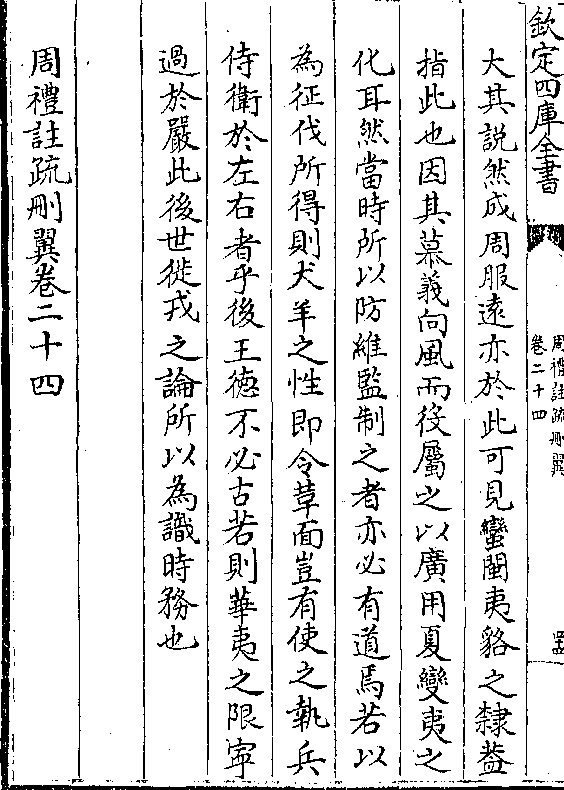 欽定四庫全書
周禮註疏刪翼
卷二十四
大其説然成周服遠亦於此可見蠻閩夷貉之隸葢
指此也因其慕義向風而役屬之以廣用夏變夷之
化耳然當時所以防維監制之者亦必有道焉若以
為征伐所得則犬羊之性即令革面豈有使之執兵
侍衛於左右者乎後王德不必古若則華夷之限寜
過於嚴此後世徙戎之論所以為識時務也
周禮註疏刪翼卷二十四